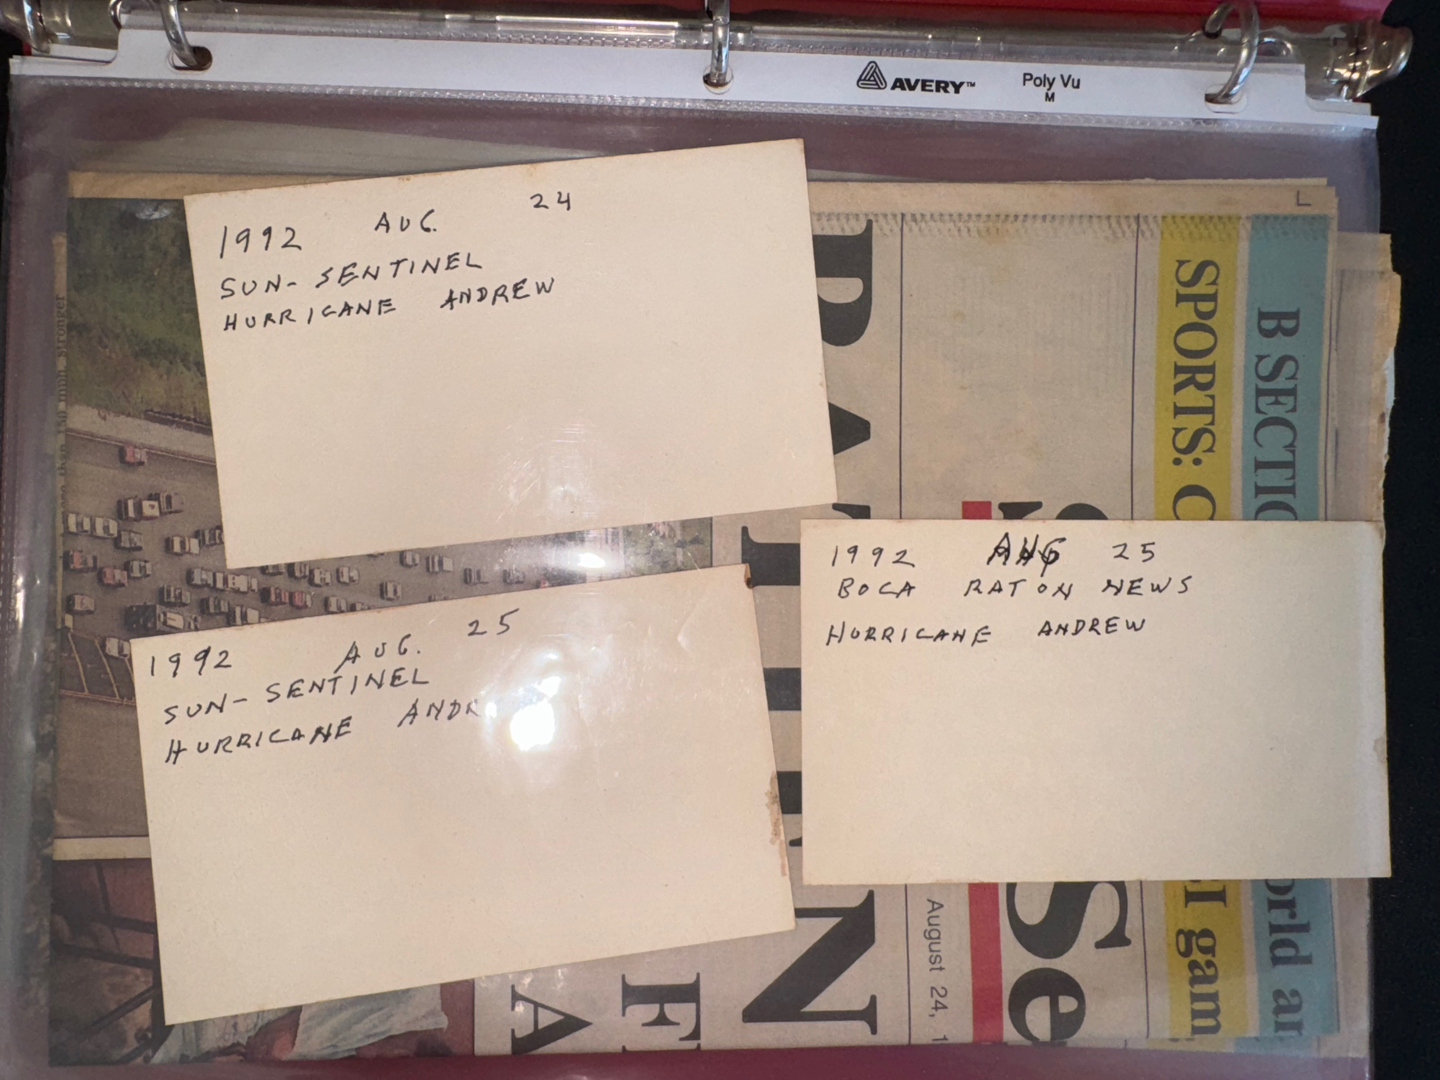 AVERY™ Poly Vu
M
1992 AUG. 24
SUN-SENTINEL
HURRICANE ANDREW
1992 AUG. 25
SUN-SENTINEL
HURRICANE ANDR
1992 AUG 25
BOCA RATON NEWS
HURRICANE ANDREW
L
B SECTIO
SPORTS: C
I gam
orld ar
Se
August 24, 1
than 150 mph. Stronger